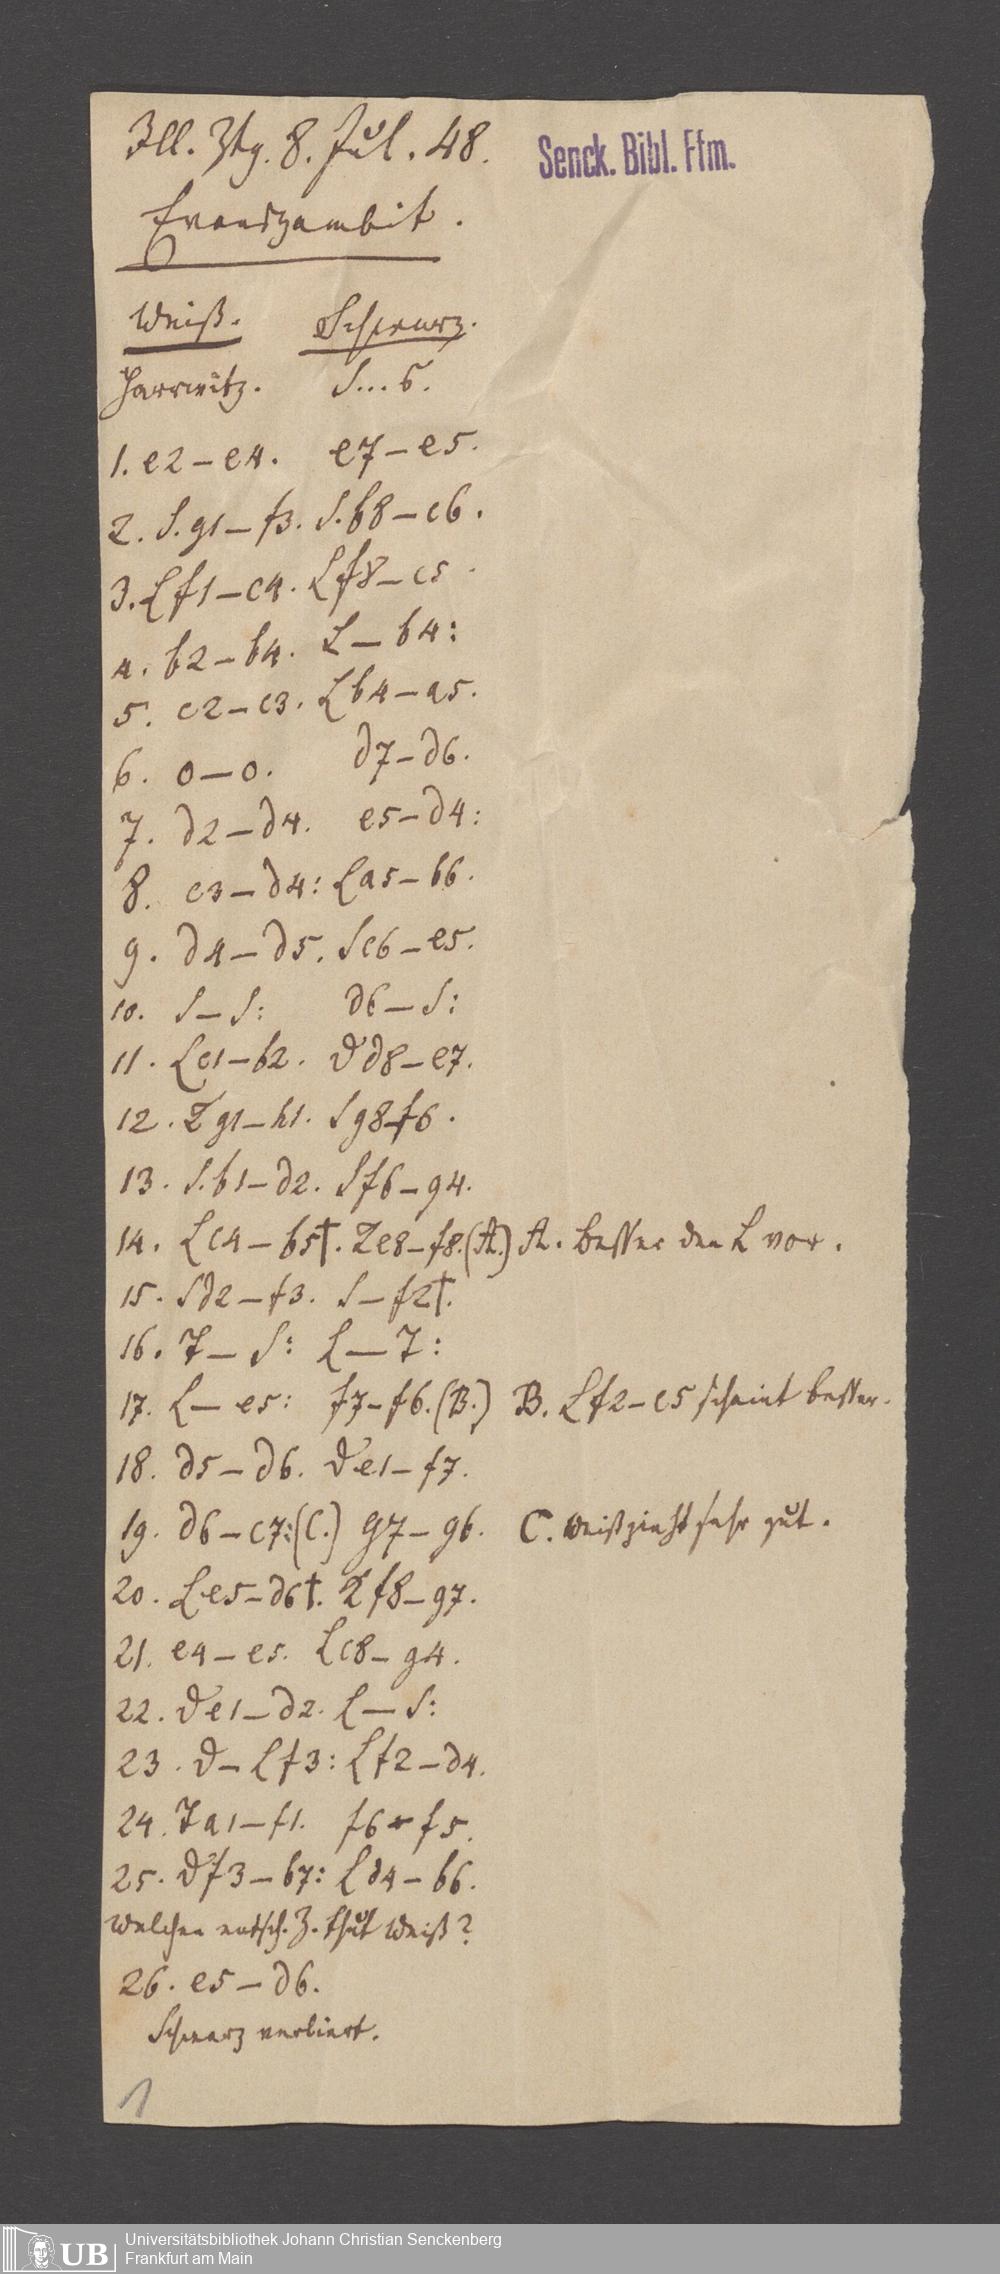 Ill. Ztg. 8. Jul. 48.
Senck. Bibl. Ffm.
Evanszambit.
Weiß. Schwarz.
Harrwitz. S...ß.
1. e2–e4. e7–e5.
2. S.g1–f3. S.b8–c6.
3. Lf1–c4. Lf8–c5.
4. b2–b4. L–b4:
5. c2–c3. Lb4–a5.
6. o–o. d7–d6.
7. d2–d4. e5–d4:
8. c3–d4: La5–b6.
9. d4–d5. Sc6–e5.
10. S–S: d6–S:
11. Lc1–b2. Dd8–e7.
12. Kg1–h1. Sg8–f6.
13. S.b1–d2. Sf6–g4.
14. Lc4–b5†. Ke8–f8.(A.) A. besser den L vor.
15. Sd2–f3. S–f2†.
16. T–S: L–T:
17. L–e5: f7–f6.(B.) B. Lf2–c5 scheint besser.
18. d5–d6. De1–f7.
19. d6–c7:(C.) g7–g6. C. Weiß zieht sehr gut.
20. Le5–d6†. Kf8–g7.
21. e4–e5. Lc8–g4.
22. De1–d2. L–S:
23. D–Lf3: Lf2–d4.
24. Ta1–f1. f6–f5.
25. Df3–b7: Ld4–b6.
Welchen entsch. Z. thut Weiß?
26. e5–d6.
Schwarz verliert.
1
UB
Universitätsbibliothek Johann Christian Senckenberg
Frankfurt am Main